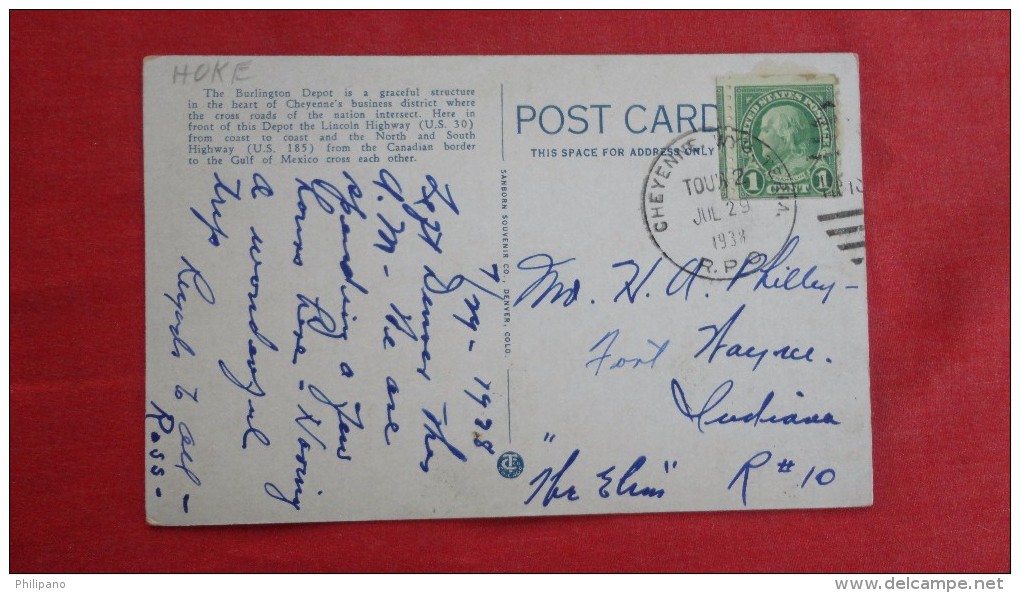 HOKE
The Burlington Depot is a graceful structure
in the heart of Cheyenne's business district where
the cross roads of the nation intersect. Here in
front of this Depot the Lincoln Highway (U.S. 30)
from coast to coast and the North and South
Highway (U.S. 185) from the Canadian border
to the Gulf of Mexico cross each other.
POST CARD
THIS SPACE FOR ADDRESS ONLY
UNITED STATES POSTAGE
1 CENT 1
CHEYENNE
TOUR 2
JUL 29
1938
R.P.O.
SANBORN SOUVENIR CO., DENVER, COLO.
7/29-1938
Left Denver this
A.M- We are
spending a few
hours here - Having
a wonderful
trip Regards to all -
Ross -
H. A. Philley -
Fort Wayne.
Indiana
"The Elms" R #10
Philipano
www.delcampe.net